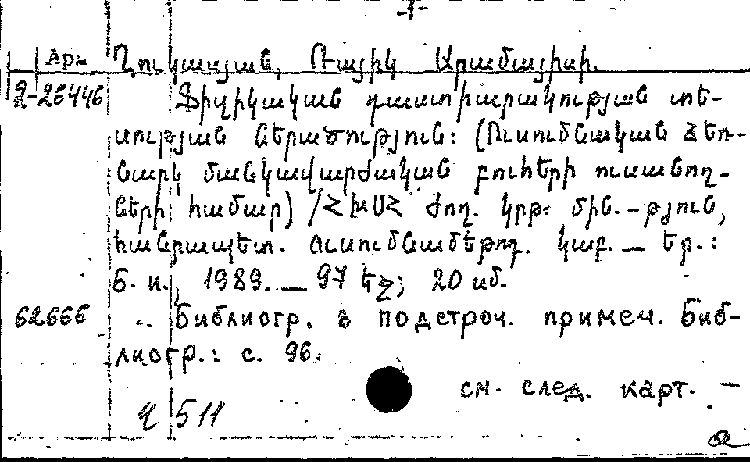 -1-
Арм Ղուկասյան, Ռայիկ Արամայիսի.
Զ-26446 Ֆիզիկական դաստիարակության տե-
սության ներածություն: (Ուսումնական ձեռ-
նարկ մանկավարժական բուհերի ուսանող-
ների համար) /ՀԽՍՀ ժող. կրթ. մին.-թյուն,
հանրապետ. ուսումնամեթոդ. կաբ. — Եր.:
Б. и., 1989. — 97 եջ; 20 սմ.
62666 .. Библиогр. в подстроч. примеч. Биб-
лиогр.: с. 96.
см. след. карт. —
Զ 511